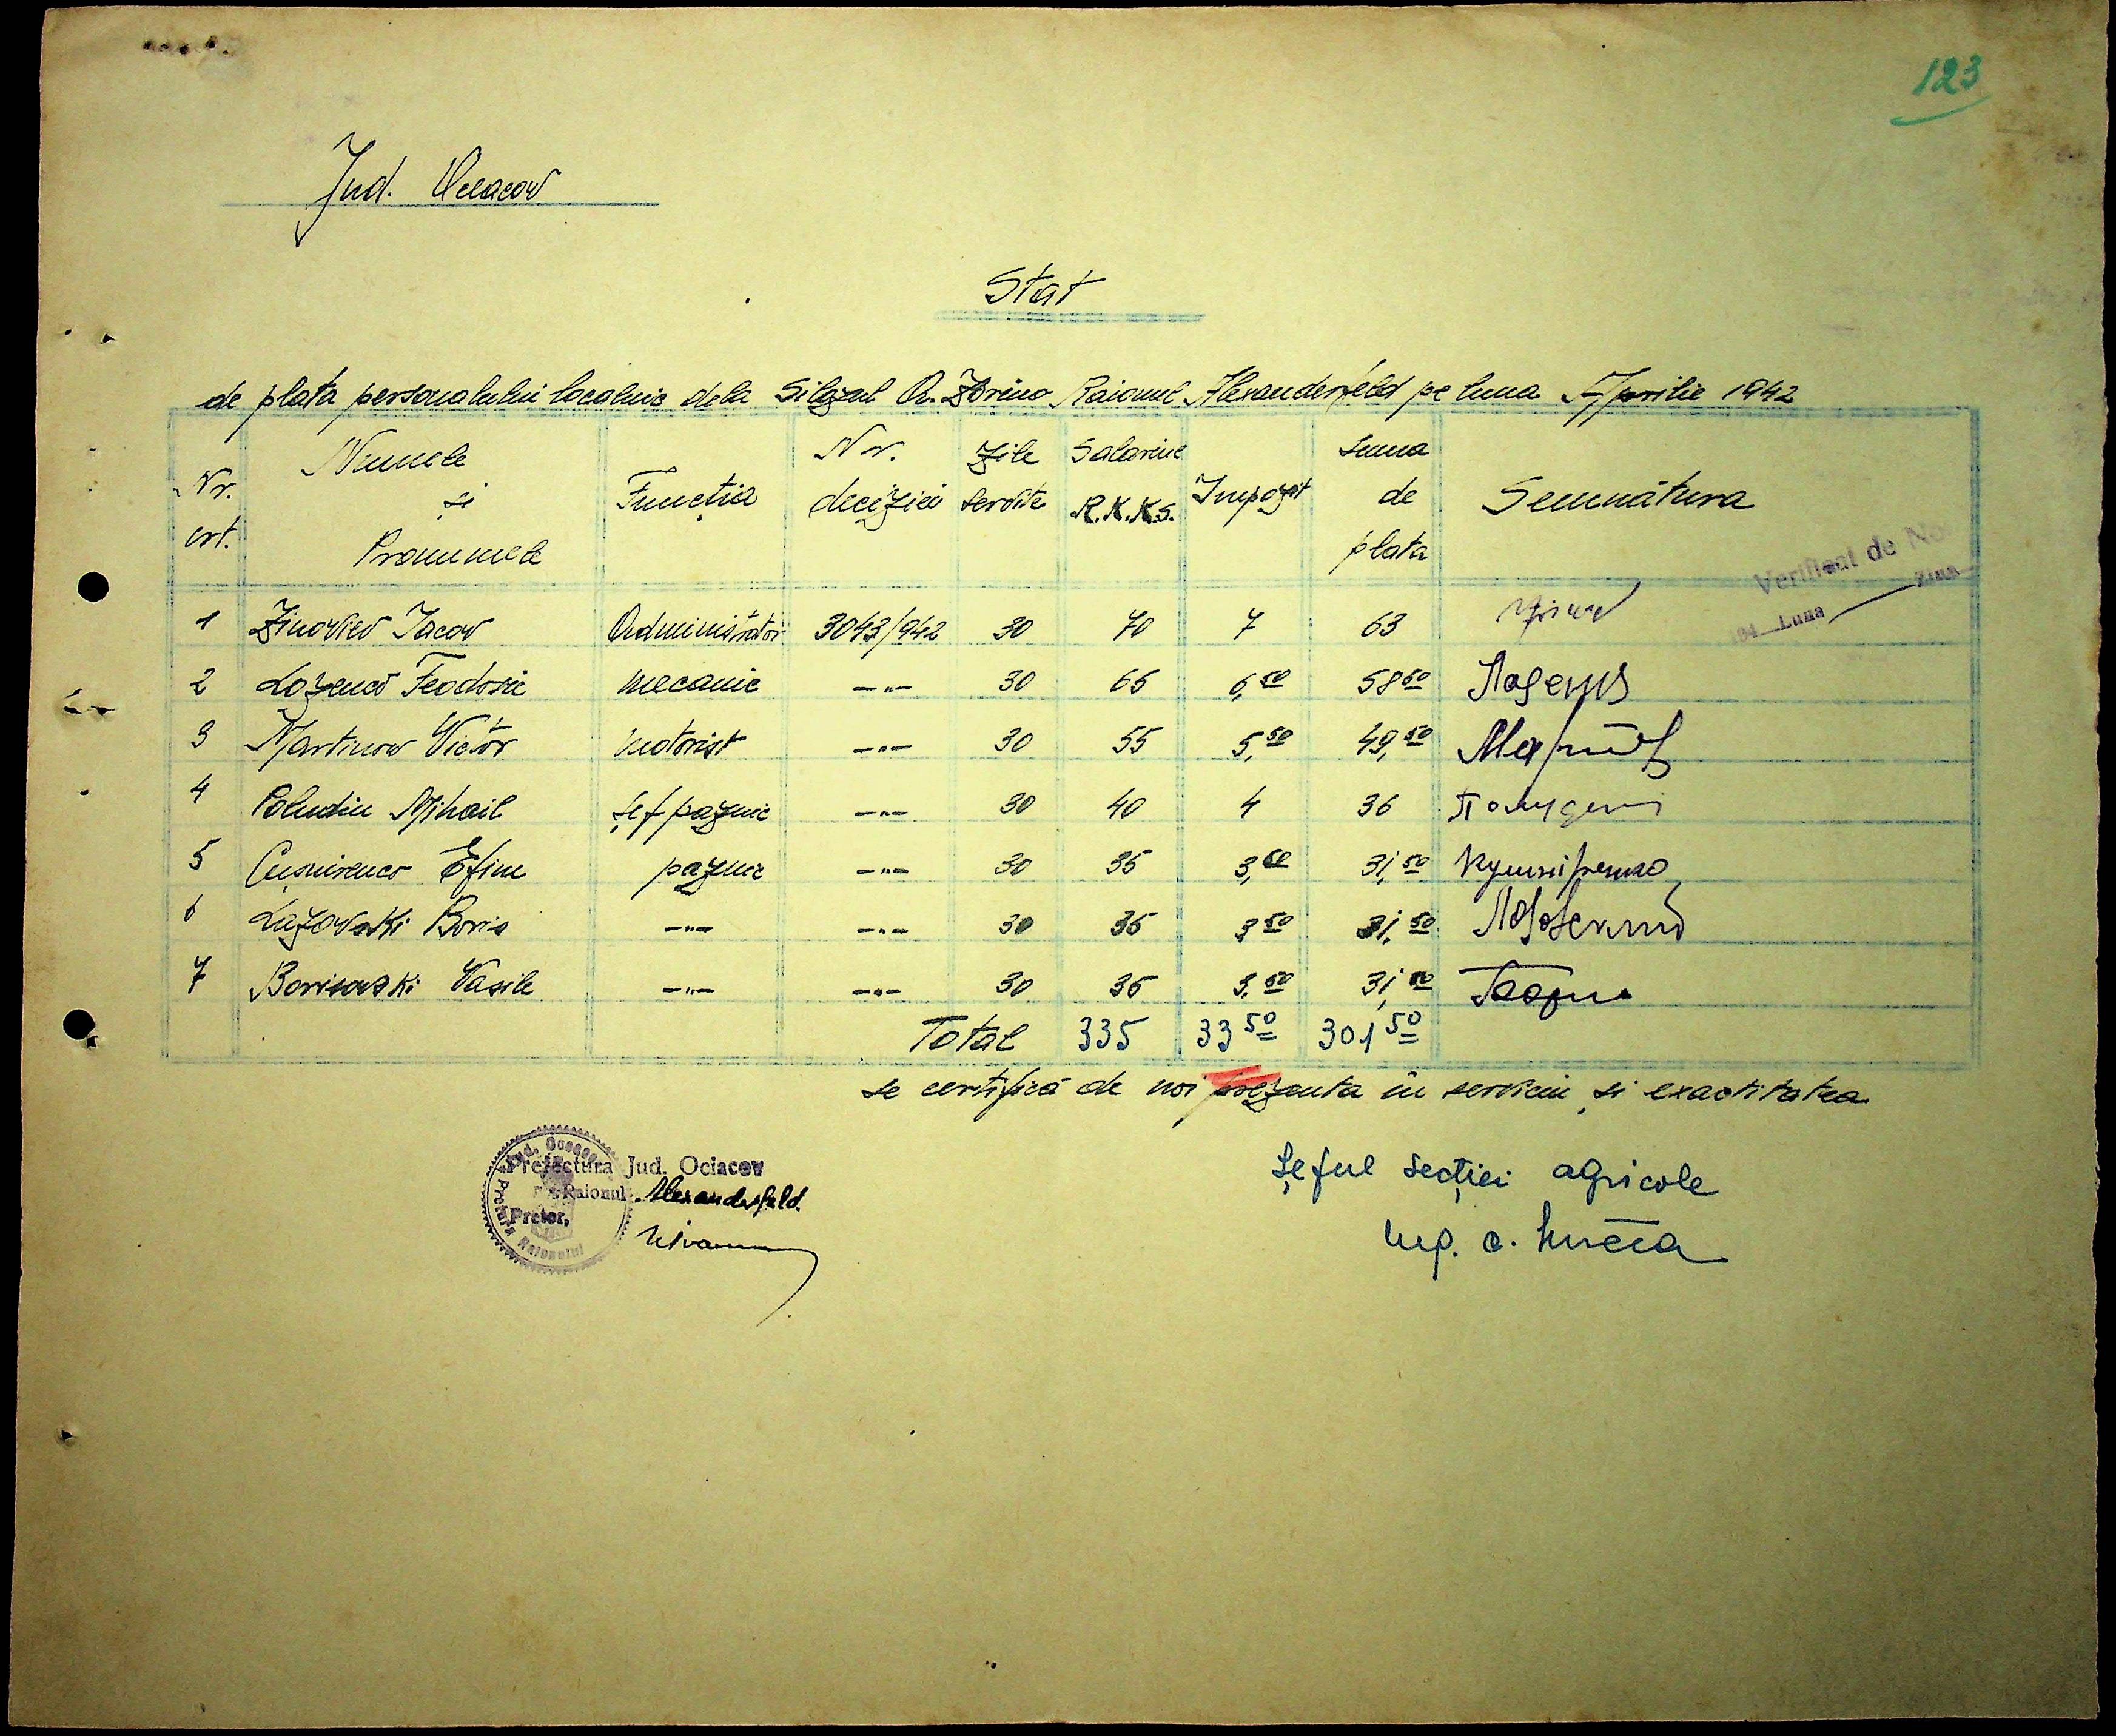 123
Jud. Oceacov
Stat
de plata personalului localnic dela Silozul Zorino Raionul Alexanderfeld pe luna Aprilie 1942
Nr. crt. Numele și Pronumele Funcția Nr. deciziei Zile servite Salariul R.K.K.S. Impozit Suma de plata Semnătura
Verificat de No
194 Luna Ziua
1 Zinoviev Iacov Administrator 3043/942 30 70 7 63
2 Lozenco Feodosie mecanic —"— 30 65 6,50 58 50
3 Martinov Victor motorist —"— 30 55 5,50 49,50
4 Poludin Mihail șef paznic —"— 30 40 4 36
5 Cușnirenco Efim paznic —"— 30 35 3,50 31,50 Кушніренко
6 Lazovski Boris —"— —"— 30 35 3 50 31,50
7 Borisovski Vasile —"— —"— 30 35 3,50 31,50
Total 335 33 50 301 50
se certifică de noi prezenta în serviciu și exactitatea
Prefectura Jud. Ociacov
Raionul Alexanderfeld.
Pretor,
Pretura Raionului
Șeful secției agricole